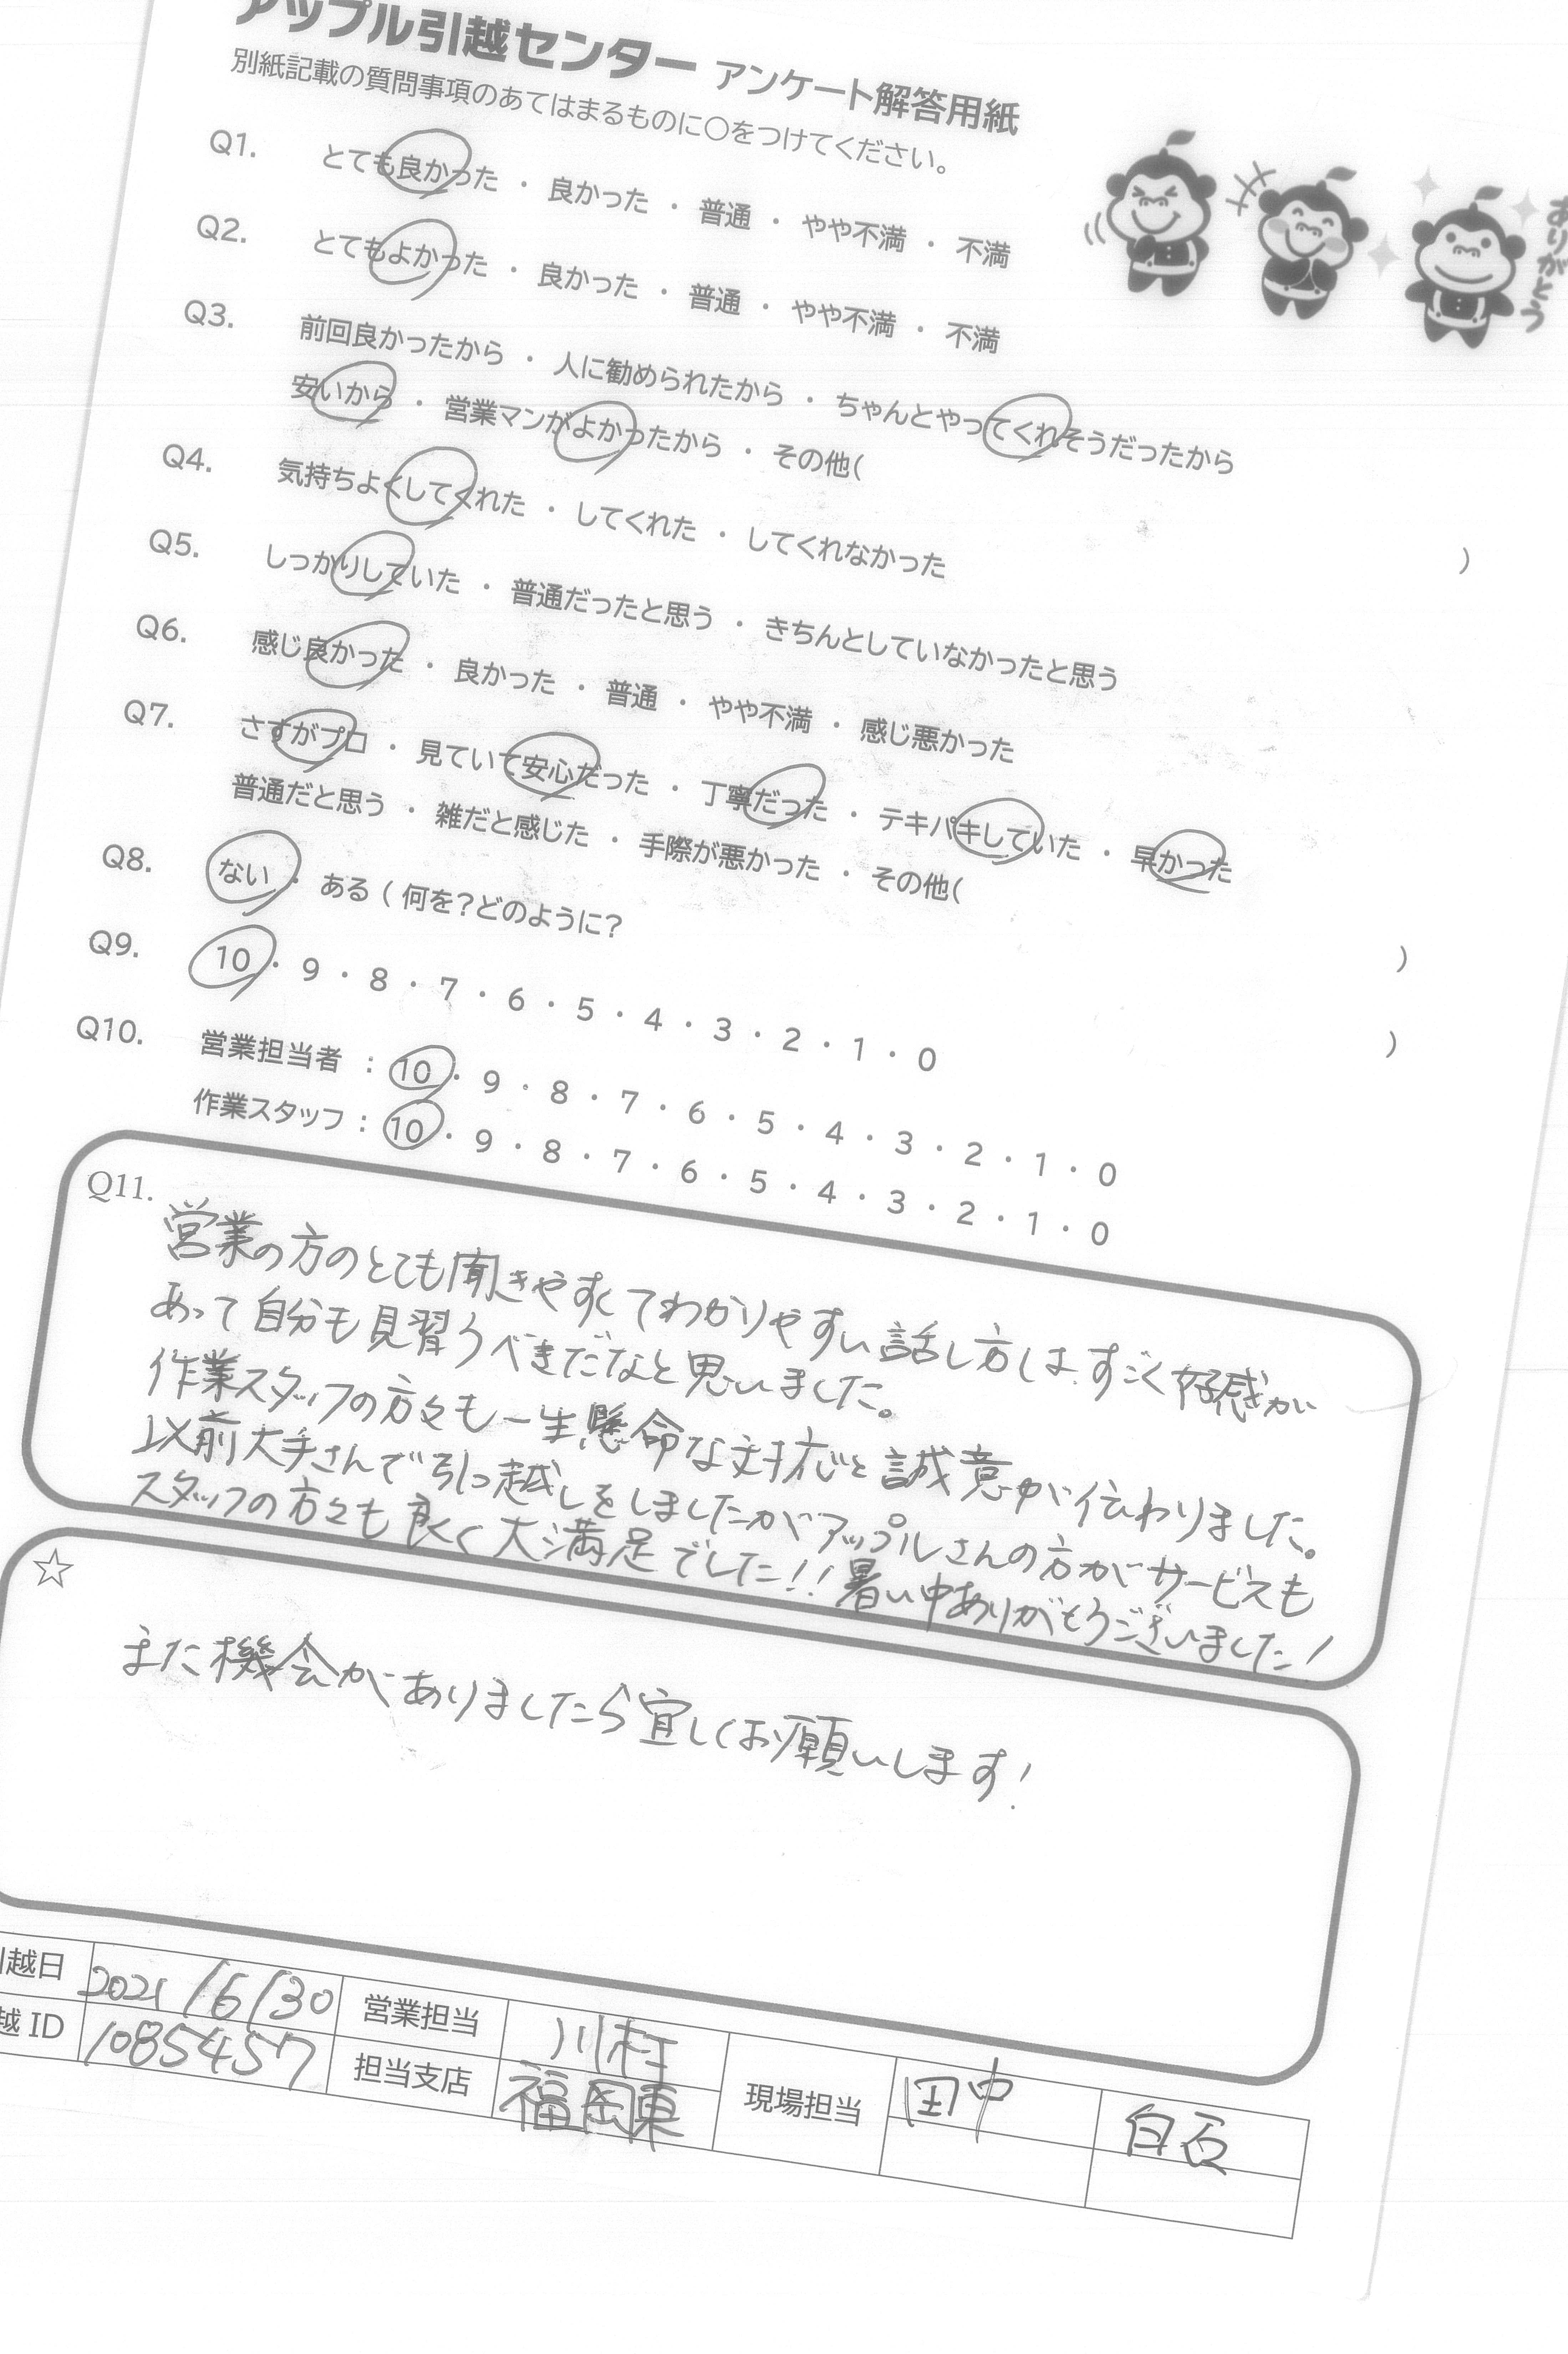 アップル引越センター アンケート解答用紙
別紙記載の質問事項のあてはまるものに○をつけてください。
ありがとう
Q1. とても良かった ・ 良かった ・ 普通 ・ やや不満 ・ 不満
Q2. とてもよかった ・ 良かった ・ 普通 ・ やや不満 ・ 不満
Q3. 前回良かったから ・ 人に勧められたから ・ ちゃんとやってくれそうだったから
安いから ・ 営業マンがよかったから ・ その他( )
Q4. 気持ちよくしてくれた ・ してくれた ・ してくれなかった
Q5. しっかりしていた ・ 普通だったと思う ・ きちんとしていなかったと思う
Q6. 感じ良かった ・ 良かった ・ 普通 ・ やや不満 ・ 感じ悪かった
Q7. さすがプロ ・ 見ていて安心だった ・ 丁寧だった ・ テキパキしていた ・ 早かった
普通だと思う ・ 雑だと感じた ・ 手際が悪かった ・ その他( )
Q8. ない ・ ある ( 何を?どのように? )
Q9. 10 ・ 9 ・ 8 ・ 7 ・ 6 ・ 5 ・ 4 ・ 3 ・ 2 ・ 1 ・ 0
Q10. 営業担当者 : 10 ・ 9 ・ 8 ・ 7 ・ 6 ・ 5 ・ 4 ・ 3 ・ 2 ・ 1 ・ 0
作業スタッフ : 10 ・ 9 ・ 8 ・ 7 ・ 6 ・ 5 ・ 4 ・ 3 ・ 2 ・ 1 ・ 0
Q11.
営業の方のとても聞きやすくてわかりやすい話し方は、すごく好感が
あって自分も見習うべきだなと思いました。
作業スタッフの方々も一生懸命な対応と誠意が伝わりました。
以前大手さんで引っ越しをしましたがアップルさんの方がサービスも
スタッフの方々も良く大満足でした!! 暑い中ありがとうございました!
☆
また機会がありましたら宜しくお願いします!
引越日 2021/6/30 営業担当 川村 現場担当 田中 白石
越 ID 1085457 担当支店 福岡東